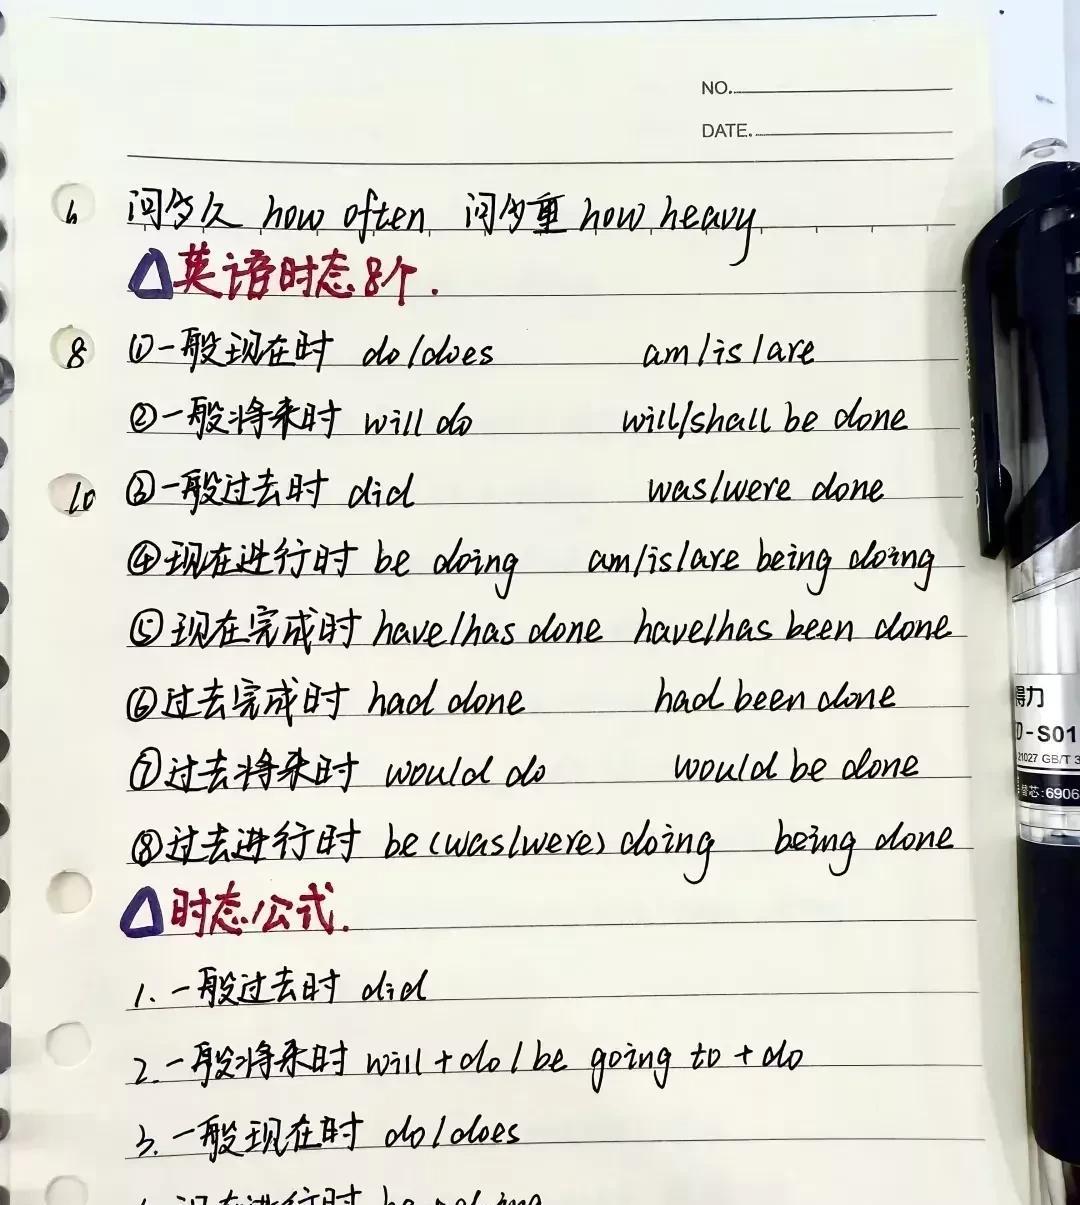 NO.
DATE.
问多久 how often 问多重 how heavy
△英语时态8个.
8 ①一般现在时 do/does am/is/are
②一般将来时 will do will/shall be done
10 ③一般过去时 did was/were done
④现在进行时 be doing am/is/are being doing
⑤现在完成时 have/has done have/has been done
⑥过去完成时 had done had been done
⑦过去将来时 would do would be done
⑧过去进行时 be(was/were) doing being done
△时态公式.
1.一般过去时 did
2.一般将来时 will+do/be going to+do
3.一般现在时 do/does
得力
-S01
21027 GB/T
芯:6906